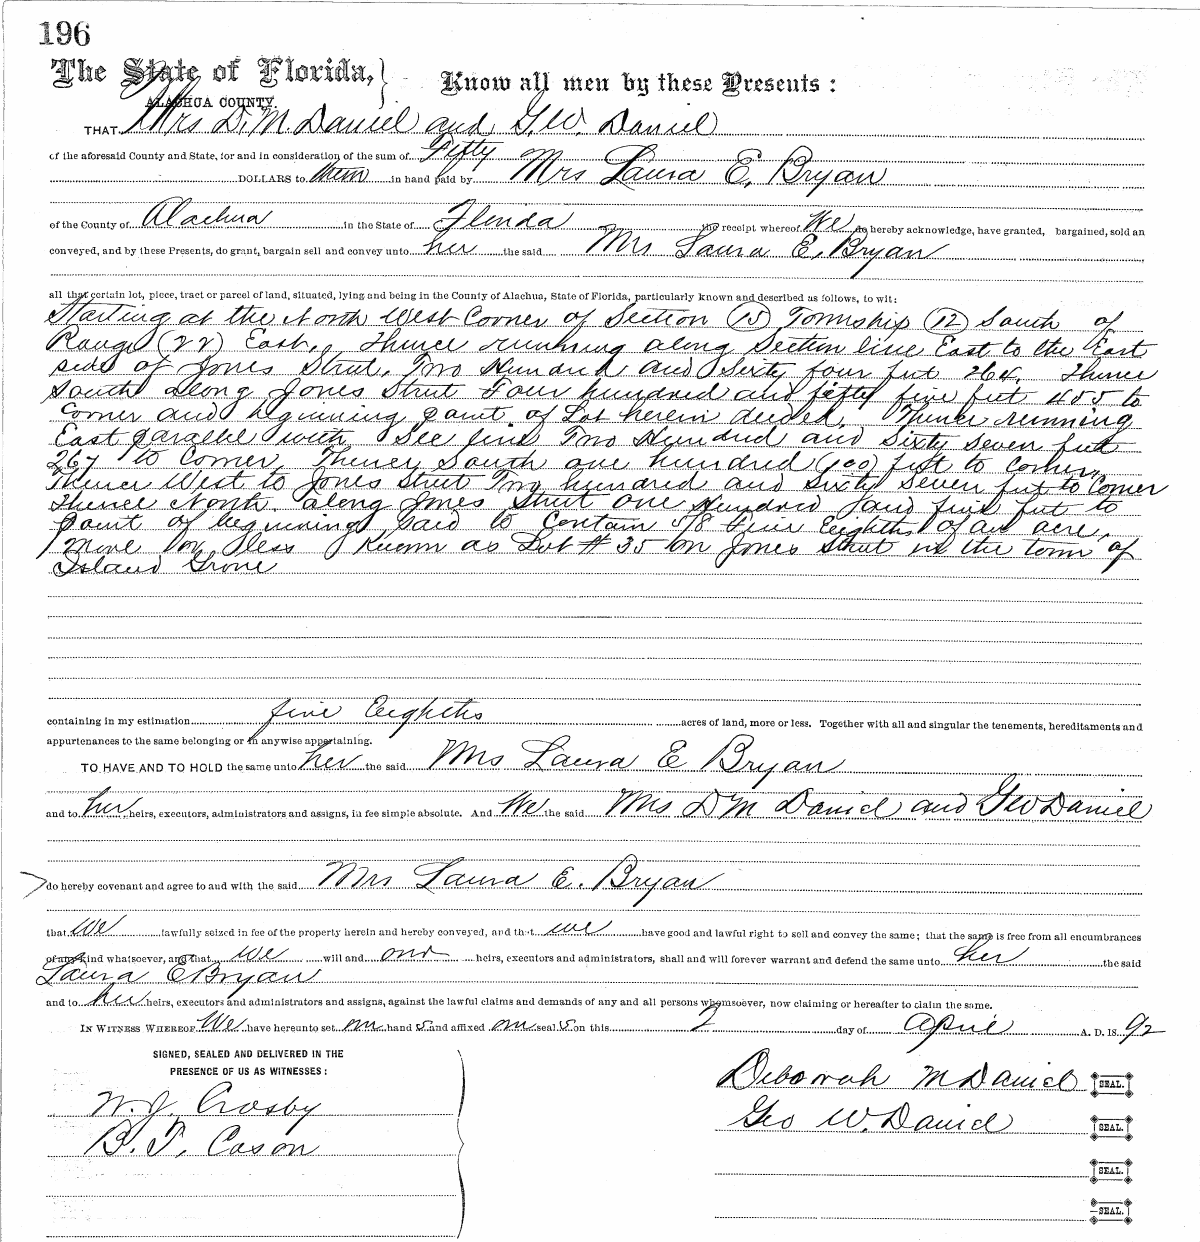 196
The State of Florida,
ALACHUA COUNTY.
Know all men by these Presents:
THAT Mrs D. M. Daniel and G. W. Daniel
of the aforesaid County and State, for and in consideration of the sum of Fifty
DOLLARS to them in hand paid by Mrs Laura E. Bryan
of the County of Alachua in the State of Florida the receipt whereof We do hereby acknowledge, have granted, bargained, sold an
conveyed, and by these Presents, do grant, bargain sell and convey unto her the said Mrs Laura E. Bryan
all that certain lot, piece, tract or parcel of land, situated, lying and being in the County of Alachua, State of Florida, particularly known and described as follows, to wit:
Starting at the North West Corner of Section (15) Township (12) South of
Range (22) East. Thence running along Section line East to the East
side of Jones Street. Two Hundred and Sixty four feet 264. Thence
South along Jones Street Four hundred and fifty five feet 455 to
Corner and beginning point of Lot herein deeded. Thence running
East parallel with Sec line Two Hundred and sixty seven feet
267 to Corner Thence South one hundred (100) feet to Corner,
Thence West to Jones Street Two hundred and Sixty Seven feet to Corner
Thence North along Jones Street one Hundred and five feet to
point of beginning Said to Contain 5/8 Five Eeighths of an acre,
More or less Known as Lot # 35 on Jones Street in the town of
Island Grove
containing in my estimation five Eeighths acres of land, more or less. Together with all and singular the tenements, hereditaments and
appurtenances to the same belonging or in anywise appertaining.
TO HAVE AND TO HOLD the same unto her the said Mrs Laura E Bryan
and to her heirs, executors, administrators and assigns, in fee simple absolute. And We the said Mrs D M Daniel and Geo Daniel
do hereby covenant and agree to and with the said Mrs Laura E. Bryan
that we lawfully seized in fee of the property herein and hereby conveyed, and that we have good and lawful right to sell and convey the same; that the same is free from all encumbrances
of any kind whatsoever, and that we will and our heirs, executors and administrators, shall and will forever warrant and defend the same unto her the said
Laura E Bryan
and to her heirs, executors and administrators and assigns, against the lawful claims and demands of any and all persons whomsoever, now claiming or hereafter to claim the same.
IN WITNESS WHEREOF We have hereunto set our hand s and affixed our seal s on this 2 day of April A. D. 18 92
SIGNED, SEALED AND DELIVERED IN THE
PRESENCE OF US AS WITNESSES:
W. J. Crosby
B. F. Cason
Deborah M Daniel SEAL.
Geo W. Daniel SEAL.
SEAL.
SEAL.